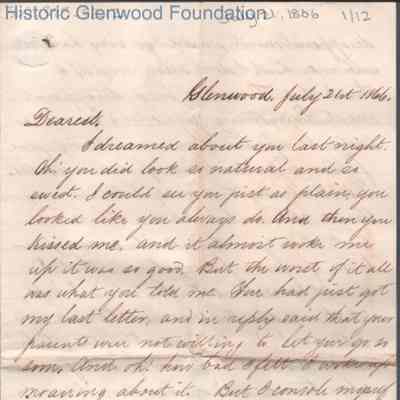 Historic Glenwood Foundation
July 21, 1866 1/12
Glenwood. July 21st 1866.
Dearest,
I dreamed about you last night.
Oh, you did look so natural and so
sweet. I could see you just as plain, you
looked like you always do. And then you
kissed me, and it almost woke me
up it was so good. But the worst of it all
was what you told me. You had just got
my last letter, and in reply said that your
parents were not willing to let you go so
soon. And oh! how bad I felt. I woke up
moaning about it. But I console myself